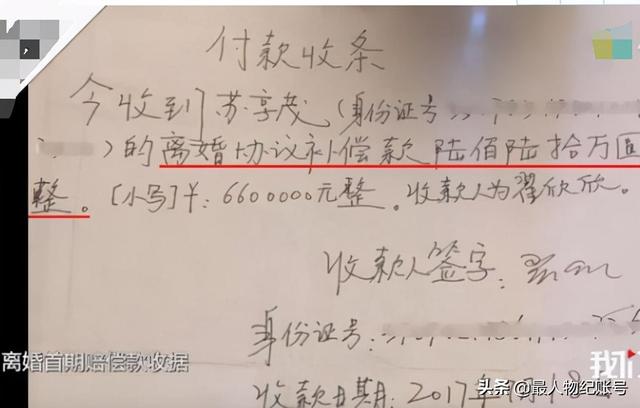 付款收条
今收到苏享茂(身份证号
)的离婚协议补偿款陆佰陆拾万
整。[小写]¥:6600000元整。收款人为翟欣欣。
收款人签字:
身份证号:
离婚首期赔偿款收据
我们
收款日期:2017年7月18
头条@最人物纪账号